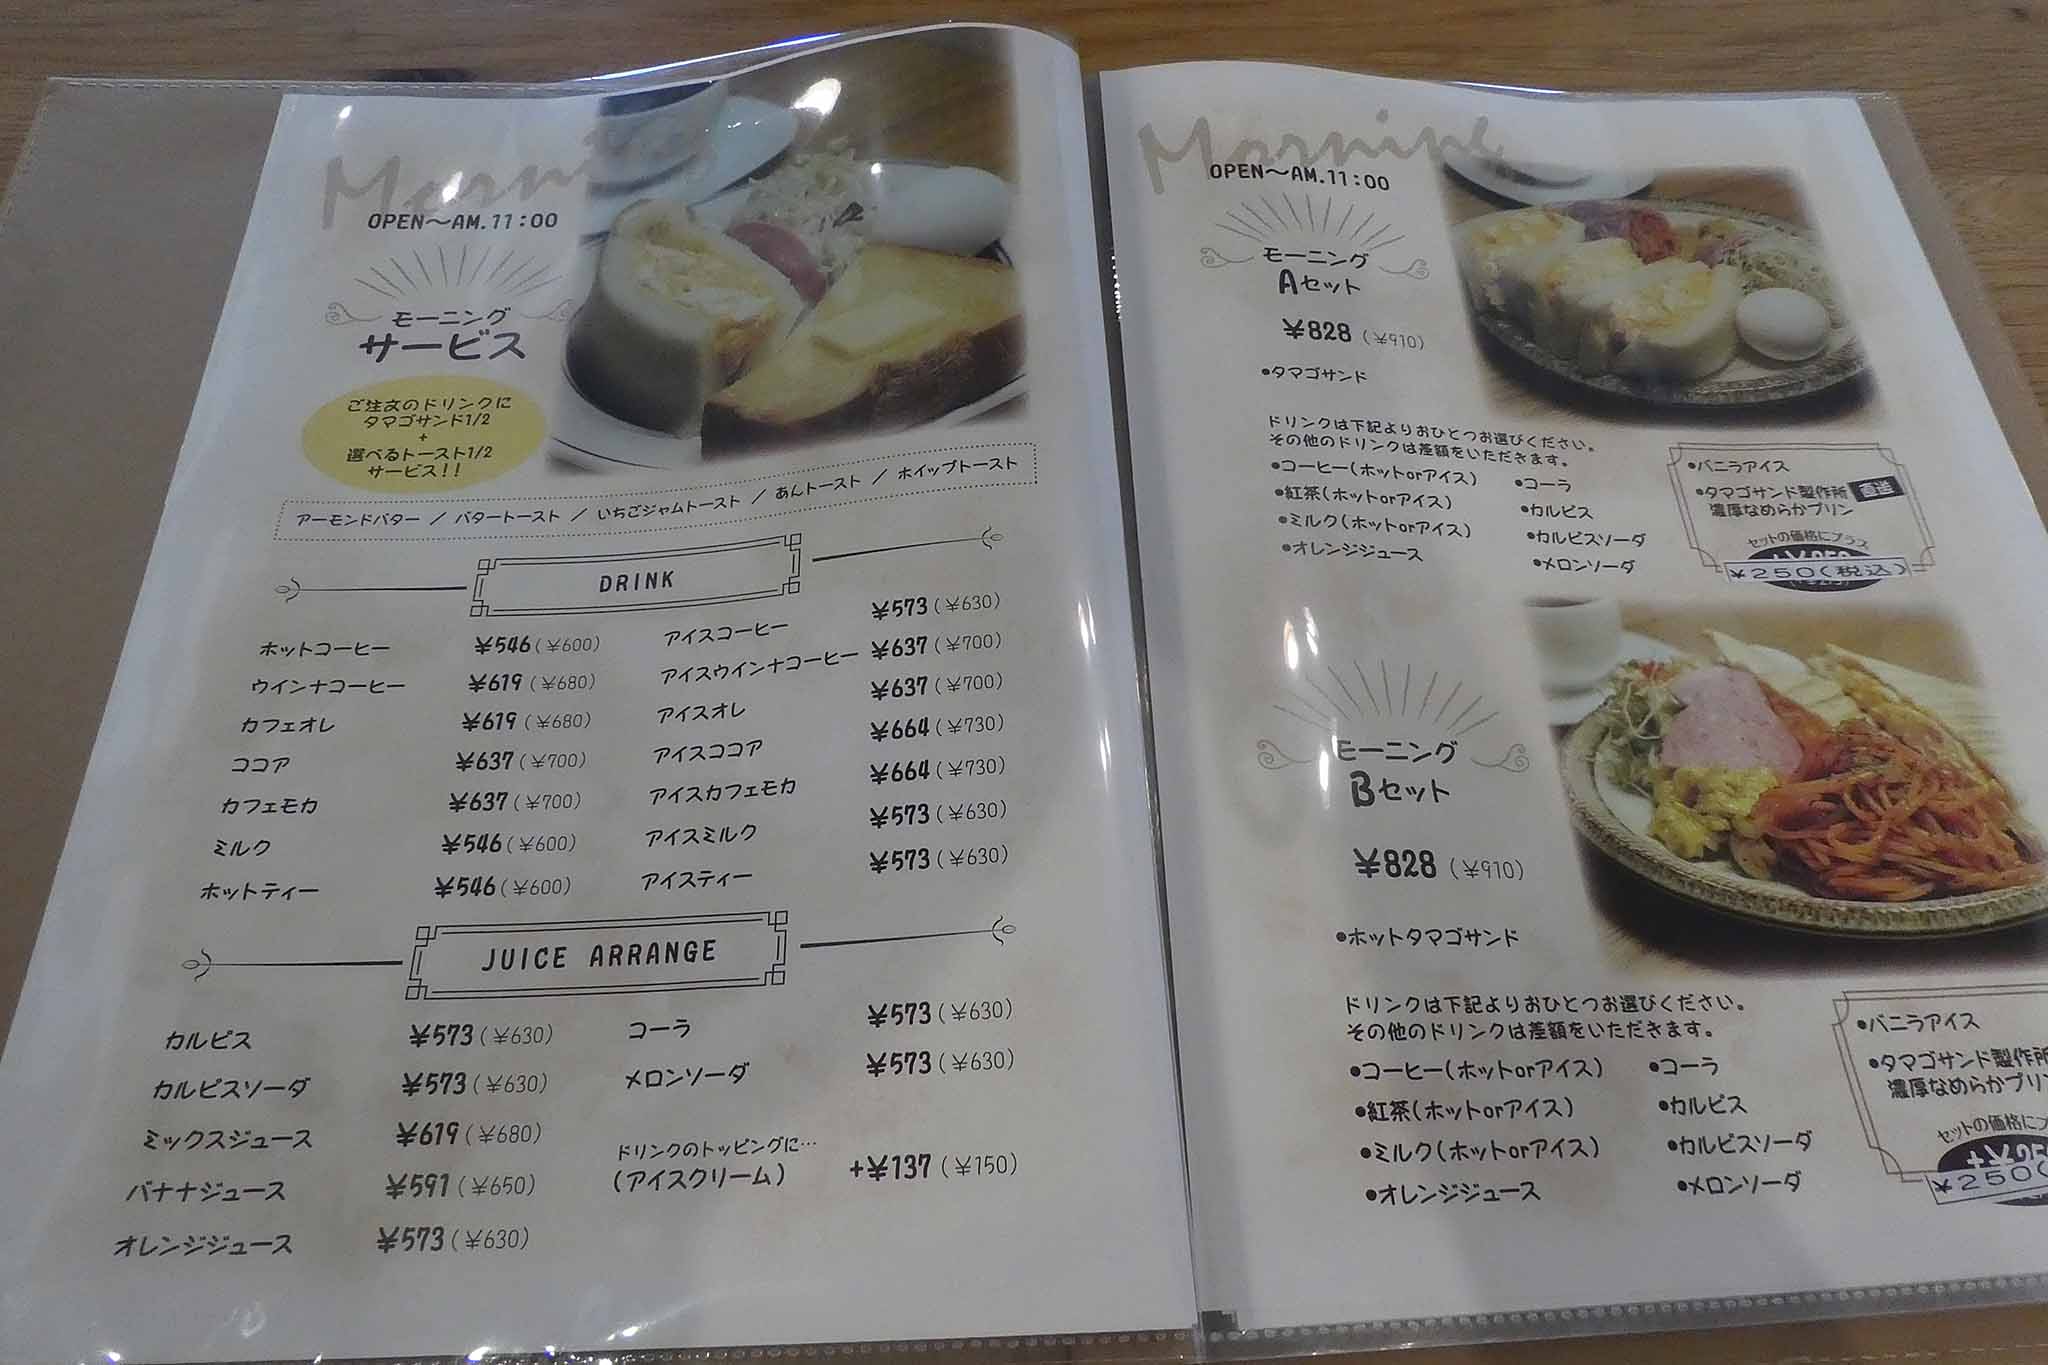 Morning
OPEN〜AM.11:00
モーニング
サービス
ご注文のドリンクに
タマゴサンド1/2
+
選べるトースト1/2
サービス!!
アーモンドバター / バタートースト / いちごジャムトースト / あんトースト / ホイップトースト
DRINK
ホットコーヒー ¥546(¥600)
ウインナコーヒー ¥619(¥680)
カフェオレ ¥619(¥680)
ココア ¥637(¥700)
カフェモカ ¥637(¥700)
ミルク ¥546(¥600)
ホットティー ¥546(¥600)
アイスコーヒー ¥573(¥630)
アイスウインナコーヒー ¥637(¥700)
アイスオレ ¥637(¥700)
アイスココア ¥664(¥730)
アイスカフェモカ ¥664(¥730)
アイスミルク ¥573(¥630)
アイスティー ¥573(¥630)
JUICE ARRANGE
カルピス ¥573(¥630)
カルピスソーダ ¥573(¥630)
ミックスジュース ¥619(¥680)
バナナジュース ¥591(¥650)
オレンジジュース ¥573(¥630)
コーラ ¥573(¥630)
メロンソーダ ¥573(¥630)
ドリンクのトッピングに…
(アイスクリーム) +¥137(¥150)
Morning
OPEN〜AM.11:00
モーニング
Aセット
¥828(¥910)
•タマゴサンド
ドリンクは下記よりおひとつお選びください。
その他のドリンクは差額をいただきます。
•コーヒー(ホットorアイス)
•紅茶(ホットorアイス)
•ミルク(ホットorアイス)
•オレンジジュース
•コーラ
•カルピス
•カルピスソーダ
•メロンソーダ
•バニラアイス
•タマゴサンド製作所 直送
濃厚なめらかプリン
セットの価格にプラス
¥250(税込)
モーニング
Bセット
¥828(¥910)
•ホットタマゴサンド
ドリンクは下記よりおひとつお選びください。
その他のドリンクは差額をいただきます。
•コーヒー(ホットorアイス)
•紅茶(ホットorアイス)
•ミルク(ホットorアイス)
•オレンジジュース
•コーラ
•カルピス
•カルピスソーダ
•メロンソーダ
•バニラアイス
•タマゴサンド製作所
濃厚なめらかプリ
セットの価格にプ
¥250(